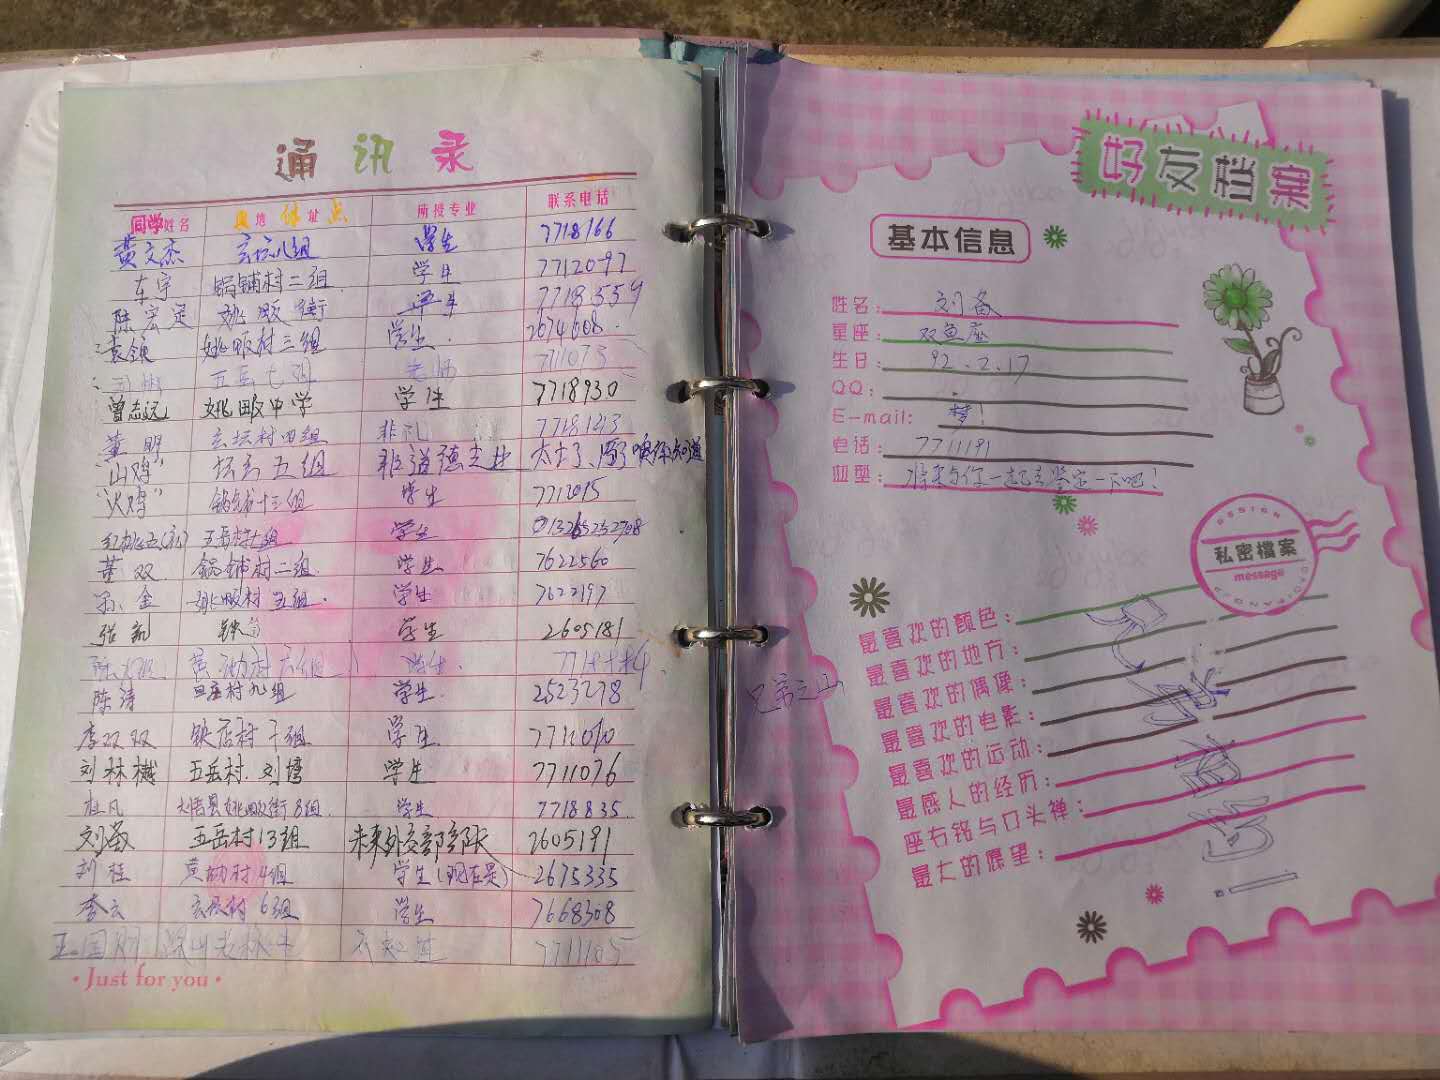 通讯录
同学姓名 地址 所授专业 联系电话
黄文杰 玄坛八组 学生 7718166
车宇 锅铺村二组 学生 7712097
陈宏定 姚畈街 学生 7718559
袁领 姚畈村三组 学生 2674608
五岳七组 老师 711073
曾志远 姚畈中学 学生 7718930
董明 玄坛村四组 非礼
"山鸡" 坛玄五组 非道德专业
"火鸡" 学生 7712015
五岳村七组 学生
董双 锅铺村二组 学生 7622560
孙金 姚畈村五组 学生 7622197
张 学生 2605181
黄幼村六组 学生
陈涛 村九组 学生 2523278
李双双 铁店村 组 学生
刘林樾 五岳村 刘塆 学生 7711076
杜凡 大悟县姚畈街8组 学生 7718835
刘备 五岳村13组 未来外交部部长 2605191
刘桂 黄幼村4组 学生(现在是) 2675335
李云 村6组 学生 7668308
王国 深山老林中 7711105
·Just for you·
好友档案
基本信息
姓名: 刘备
星座: 双鱼座
生日: 92.2.17
QQ:
E-mail: 梦!
电话: 7711191
血型: 将来与你一起去鉴定一下吧!
DESIGN
私密檔案
message
最喜欢的颜色:
最喜欢的地方:
最喜欢的偶像:
最喜欢的电影:
最喜欢的运动:
最感人的经历:
座右铭与口头禅:
最大的愿望: